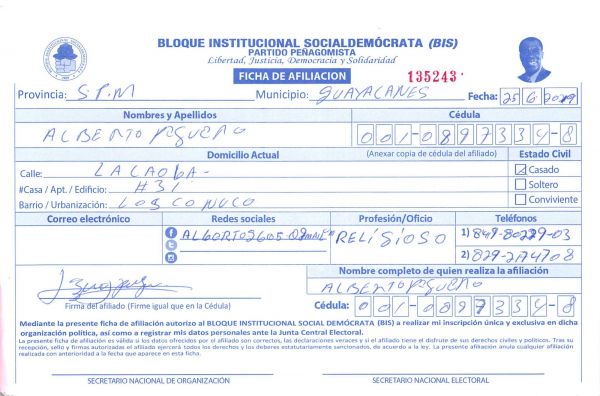 BLOQUE INSTITUCIONAL SOCIALDEMÓCRATA (BIS)
PARTIDO PEÑAGOMISTA
Libertad, Justicia, Democracia y Solidaridad
FICHA DE AFILIACION 135243
Provincia: S.P.M Municipio: GUAYACANES Fecha: 25 6 2019
Nombres y Apellidos Cédula
ALBERTO 001-0897334-8
Domicilio Actual (Anexar copia de cédula del afiliado) Estado Civil
Calle: LA CAOBA- Casado
#Casa / Apt. / Edificio: #31 Soltero
Barrio / Urbanización: LOS CONUCO Conviviente
Correo electrónico Redes sociales Profesión/Oficio Teléfonos
RELIGIOSO 1) 849-80229-03
2) 829-2174708
Nombre completo de quien realiza la afiliación
ALBERTO
Firma del afiliado (Firme igual que en la Cédula) Cédula: 001-0897334-8
Mediante la presente ficha de afiliación autorizo al BLOQUE INSTITUCIONAL SOCIAL DEMÓCRATA (BIS) a realizar mi inscripción única y exclusiva en dicha
organización política, así como a registrar mis datos personales ante la Junta Central Electoral.
La presente ficha de afiliación es válida si los datos ofrecidos por el afiliado son correctos, las declaraciones veraces y si el afiliado tiene el disfrute de sus derechos civiles y políticos. Tras su
recepción, sello y firmas autorizadas el afiliado ejercerá todos los derechos y los deberes estatutariamente sancionados, de acuerdo a la ley. La presente afiliación anula cualquier afiliación
realizada con anterioridad a la fecha que aparece en esta ficha.
SECRETARIO NACIONAL DE ORGANIZACIÓN SECRETARIO NACIONAL ELECTORAL